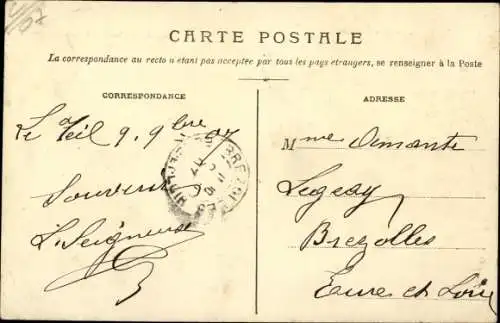 CARTE POSTALE
La correspondance au recto n'étant pas acceptée par tous les pays étrangers, se renseigner à la Poste
CORRESPONDANCE
Le Teil 9. 9bre 07
Souvenir
L. Seigneuse
ADRESSE
Mme Amante
Legeay
Brezolles
Eure et Loir